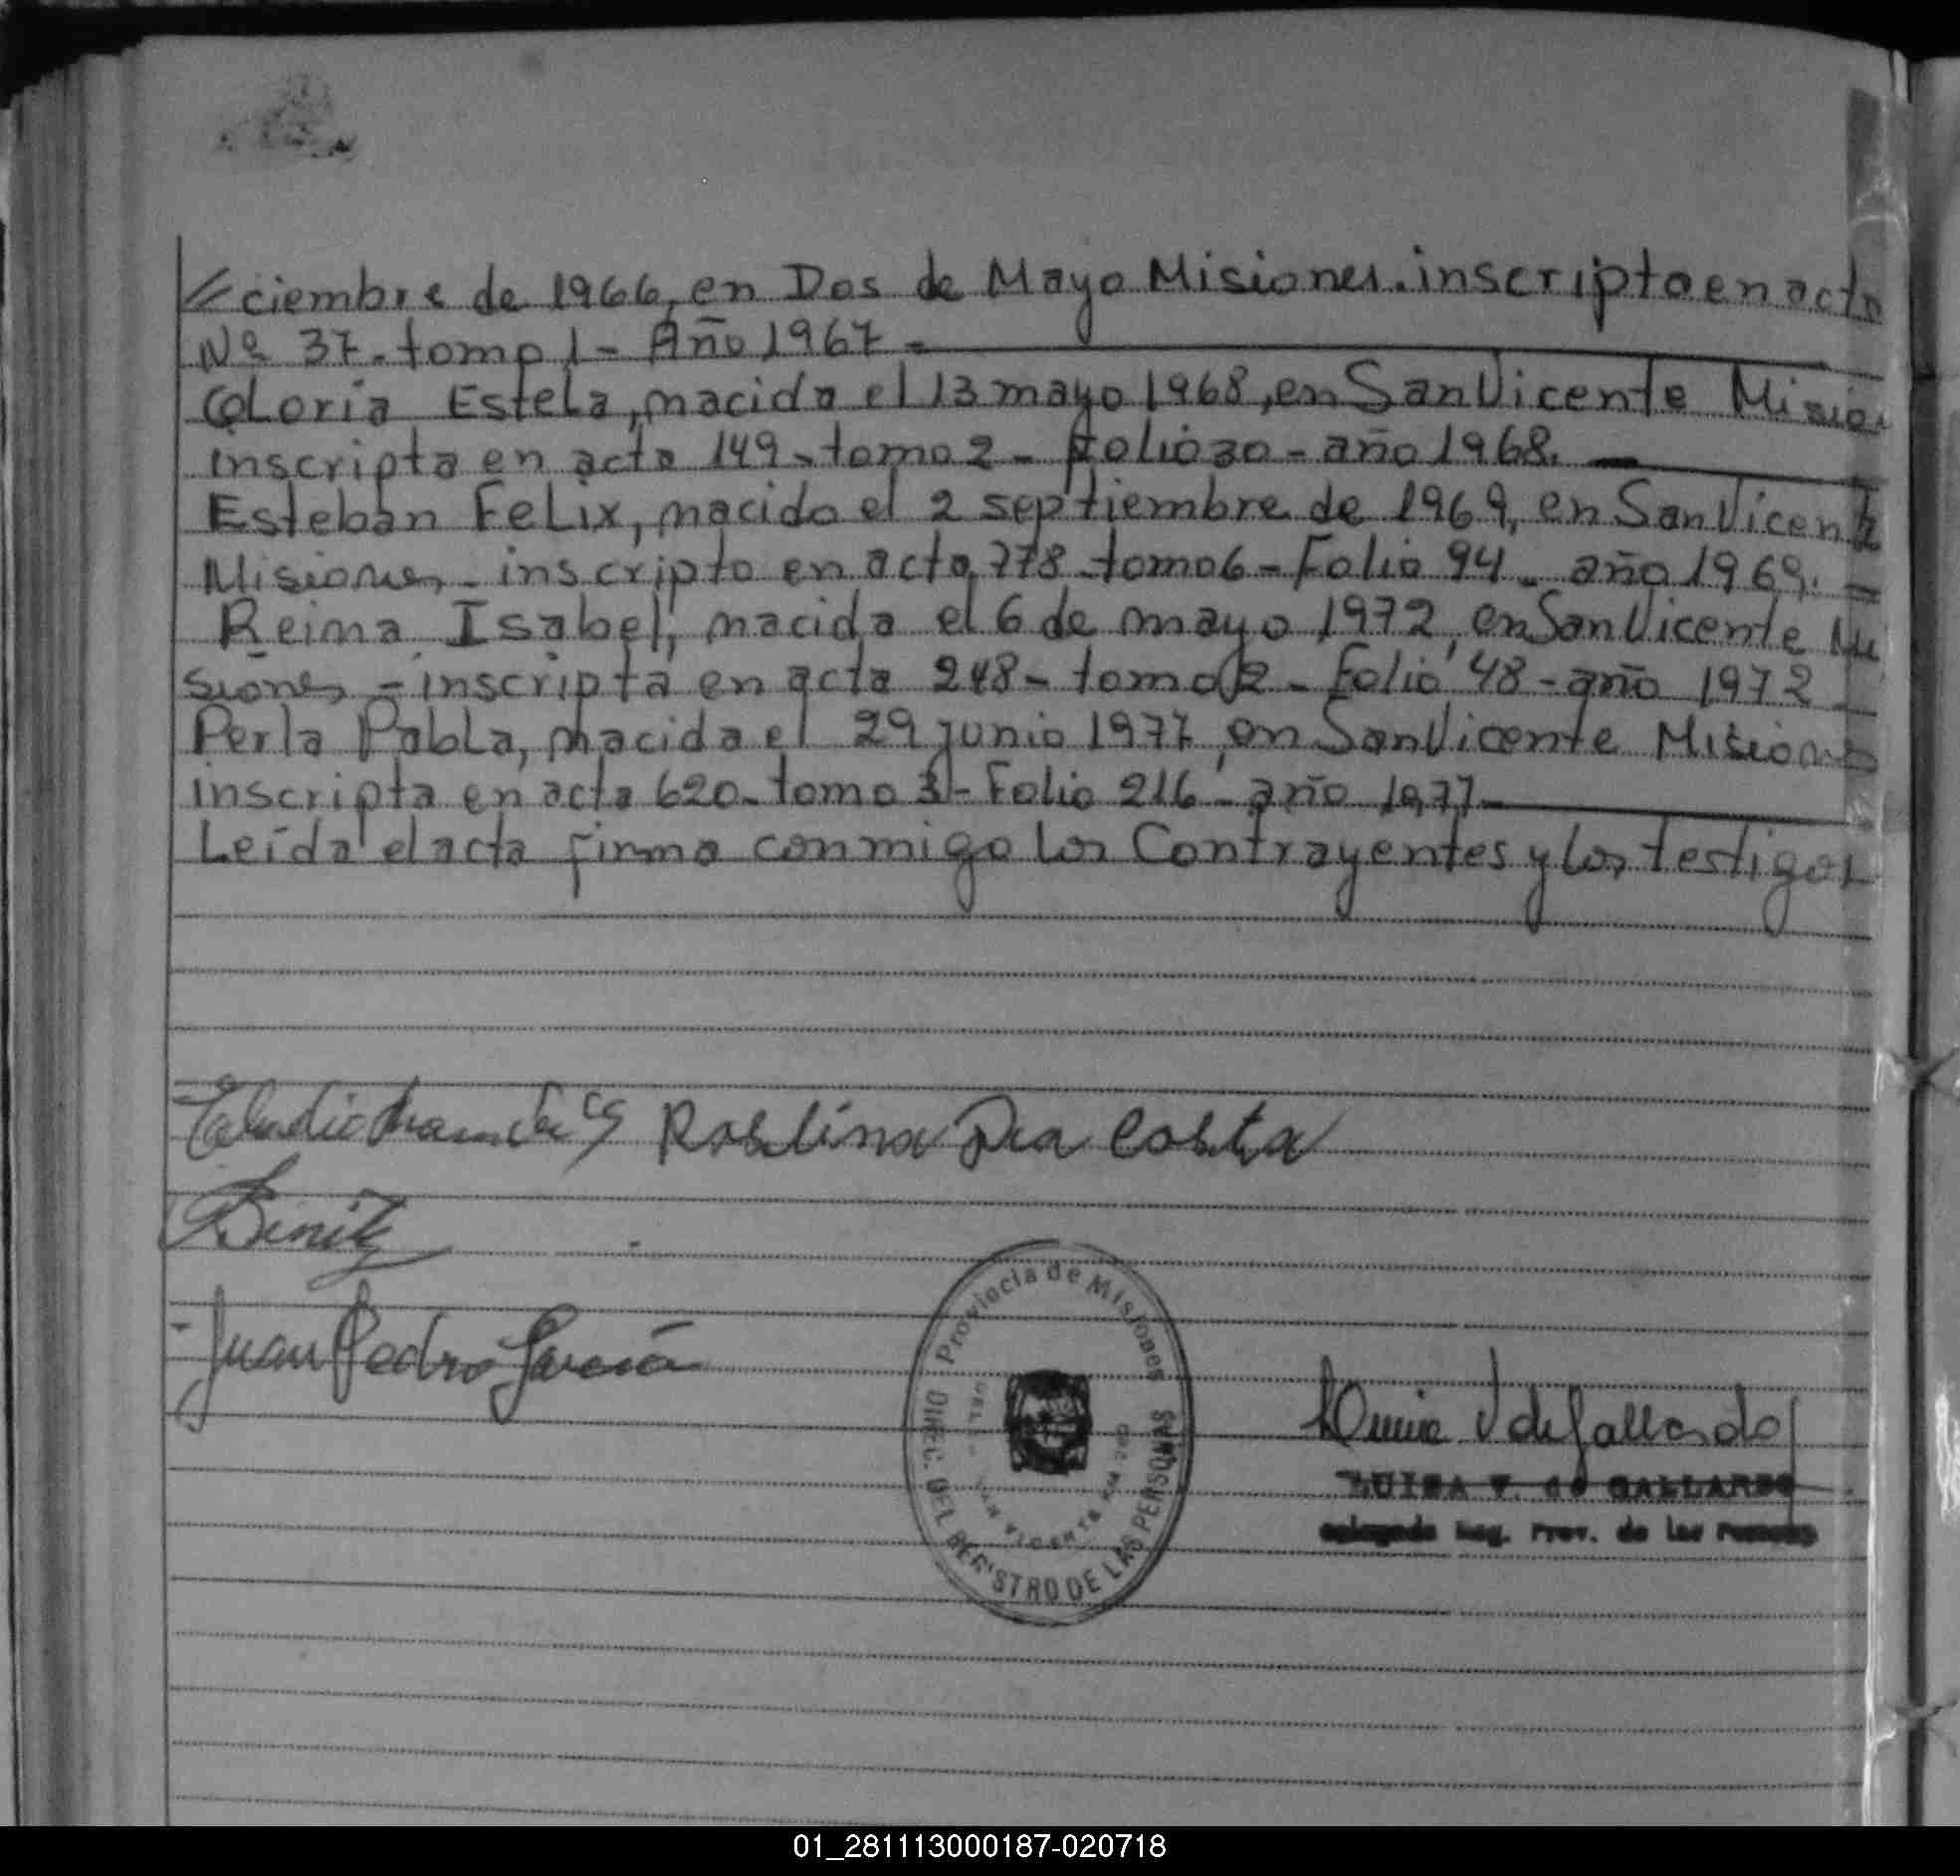 ciembre de 1966, en Dos de Mayo Misiones. inscripto en acta
Nº 37. tomo 1 - Año 1967 -
Gloria Estela, nacida el 13 mayo 1968, en San Vicente Misio.
inscripta en acta 149 - tomo 2 - Folio 30 - año 1968.
Esteban Felix, nacido el 2 septiembre de 1969, en San Vicente
Misiones - inscripto en acta 778 - tomo 6 - Folio 94 - año 1969.
Reina Isabel, nacida el 6 de mayo 1972, en San Vicente Mi
siones - inscripta en acta 248 - tomo 2 - Folio 48 - año 1972
Perla Pabla, nacida el 29 junio 1977, en San Vicente Misiones
inscripta en acta 620 - tomo 3 - Folio 216 - año 1977 -
Leída el acta firma conmigo los Contrayentes y los testigos
Roslina Da Costa
Benitz
Juan Pedro García
Provincia de Misiones
DIREC. DEL REGISTRO DE LAS PERSONAS
SAN VICENTE
V de Gallardo
LUISA V. de GALLARDO
Delegada Reg. Prov. de las Personas
01_281113000187-020718